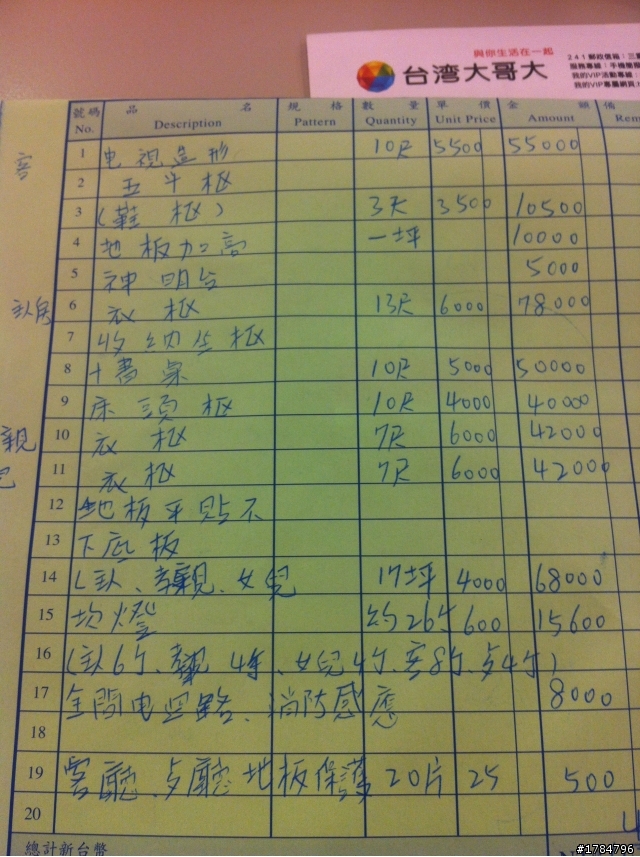 與你生活在一起
台灣大哥大
241郵政信箱：三重
服務專線：手機簡撥
我的VIP活動專線：
我的VIP專屬網頁：
號碼 品名 規格 數量 單價 金額 備
No. Description Pattern Quantity Unit Price Amount Rem
客 1 电視造形 10尺 5500 55000
2 五斗柜
3 (鞋柜) 3尺 3500 10500
4 地板加高 一坪 10000
5 神明台 5000
臥房 6 衣柜 13尺 6000 78000
7 收納坐柜
8 +書桌 10尺 5000 50000
9 床頭柜 10尺 4000 40000
親 10 衣柜 7尺 6000 42000
11 衣柜 7尺 6000 42000
12 地板平貼不
13 下底板
14 (臥、孝親、女兒 17坪 4000 68000
15 坎燈 約26个 600 15600
16 (臥6个、孝親4个、女兒4个、客8个、4个)
17 全間电迴路、消防感應 8000
18
19 客廳、廳地板保護 20片 25 500
20
總計新台幣
#1784796